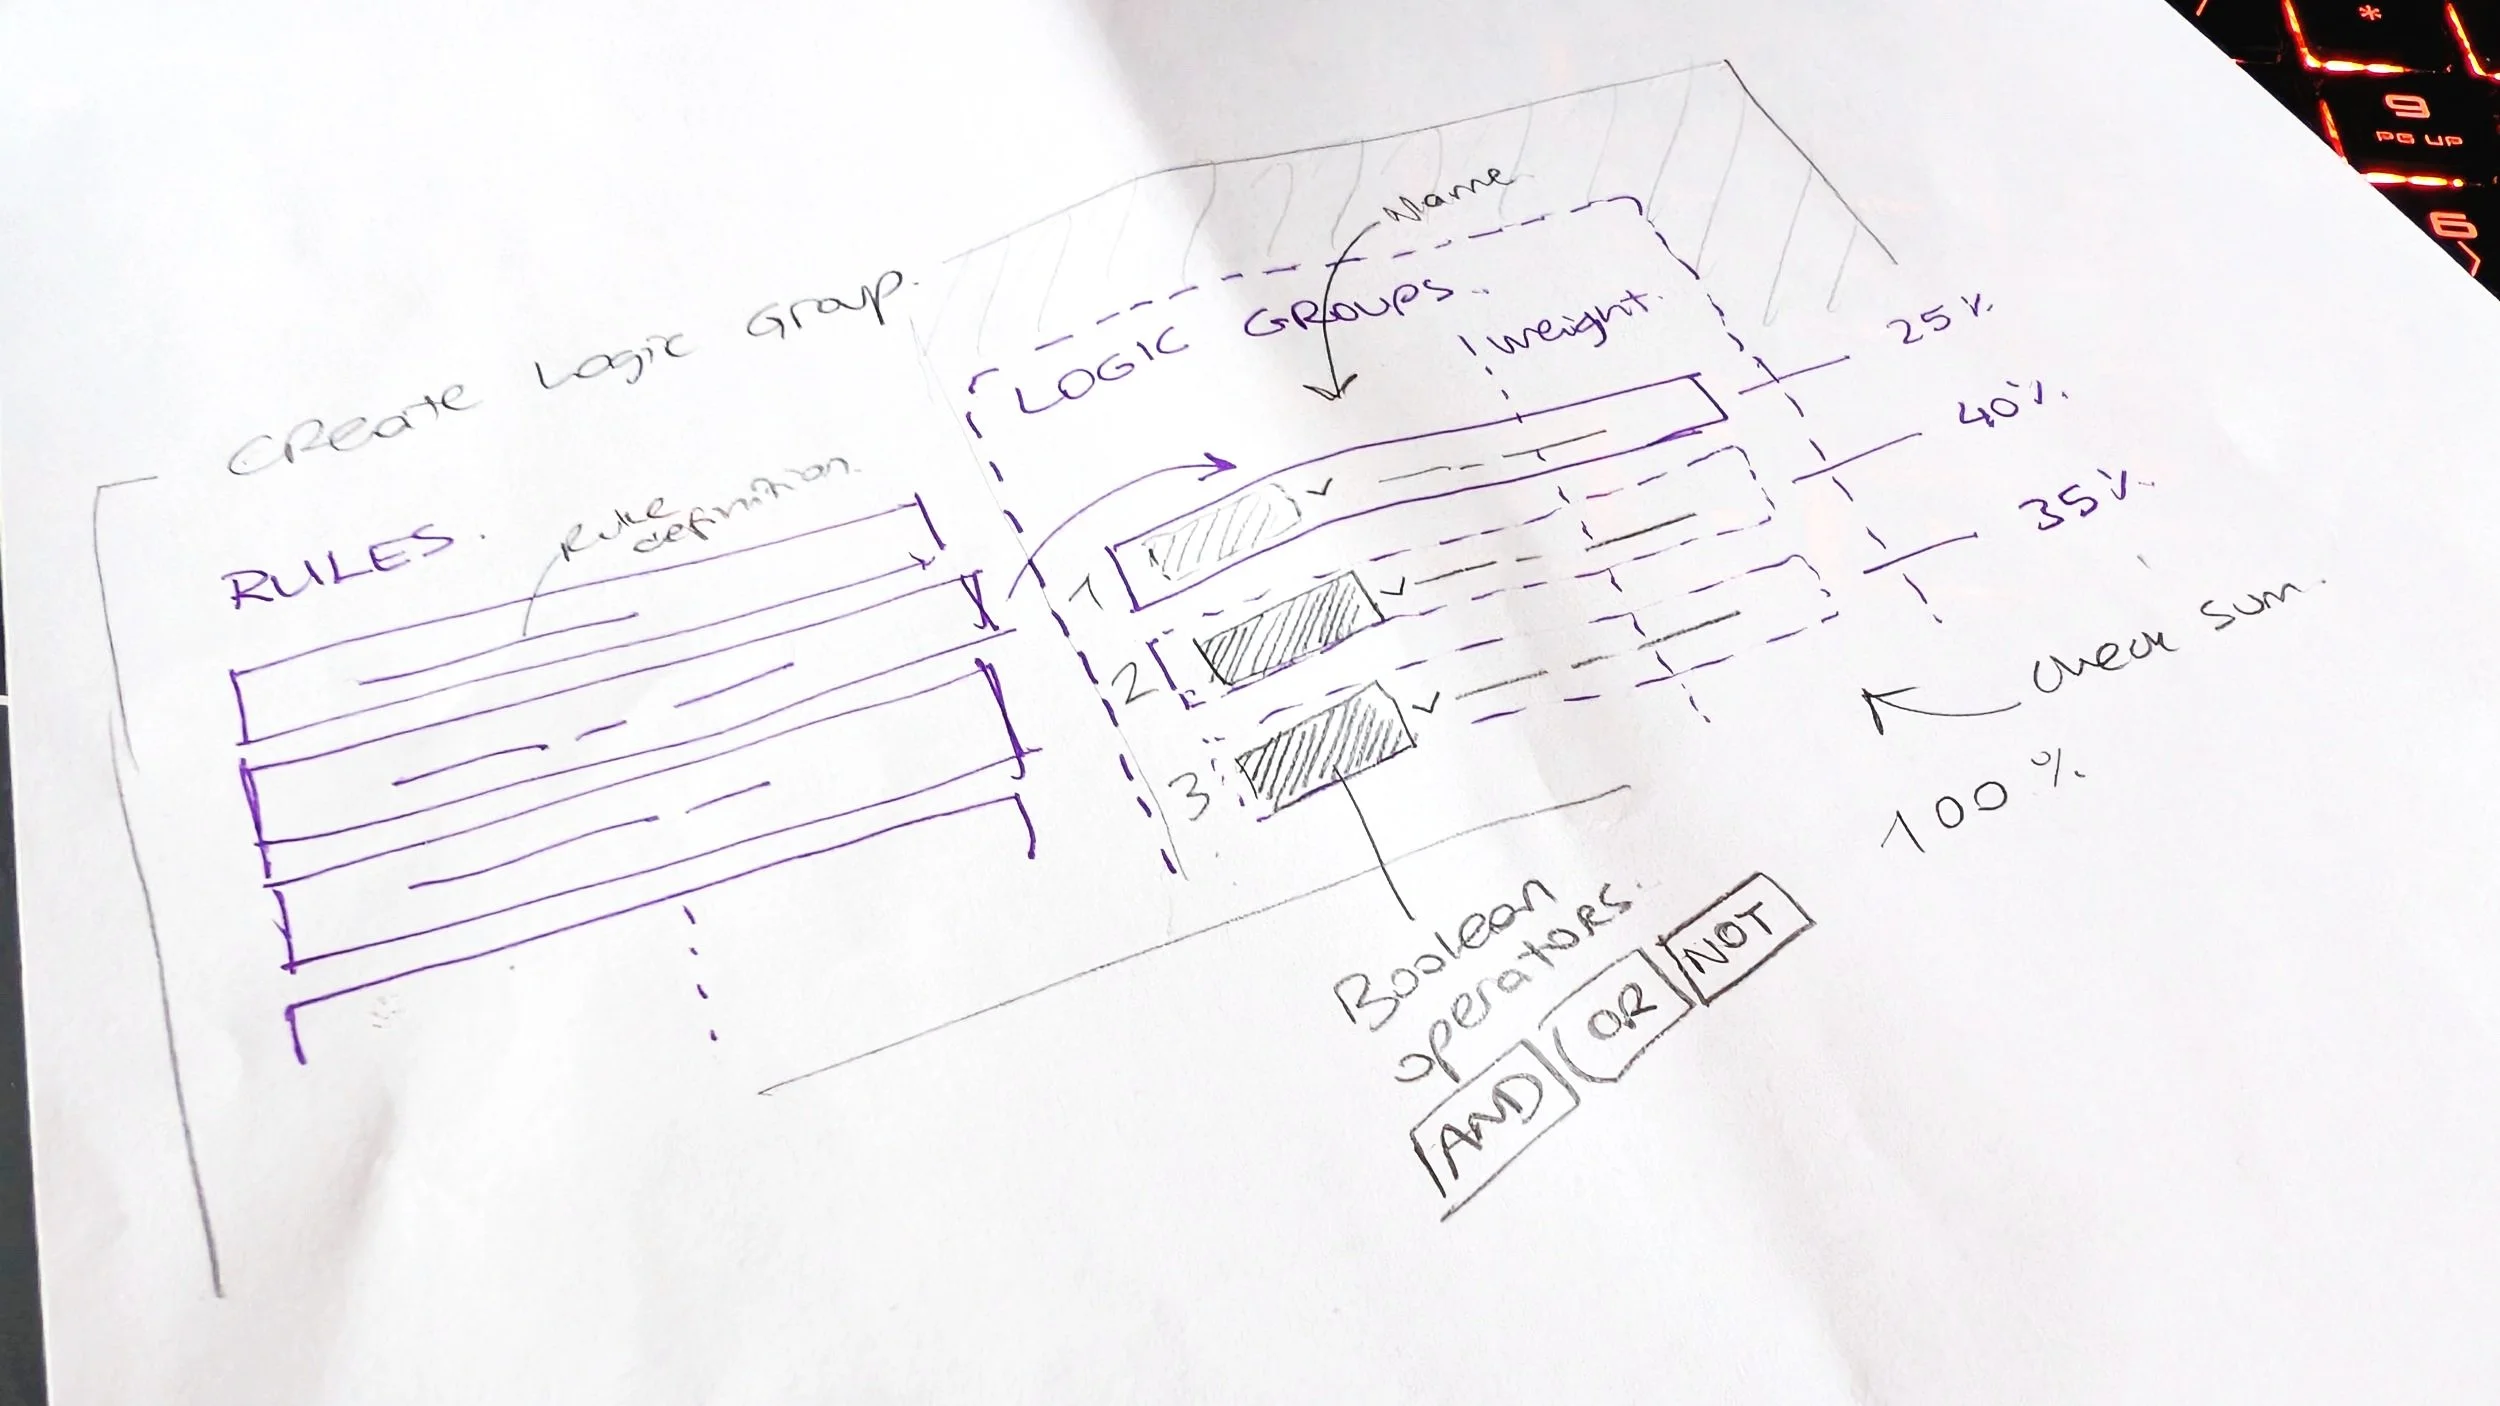 Create Logic Group.
Name
LOGIC GROUPS..
weight.
RULES.
Rule
definition.
25%
40%
35%
1
2
3
check sum.
100%
Boolean
operators.
AND OR NOT
*
9
PG UP
6